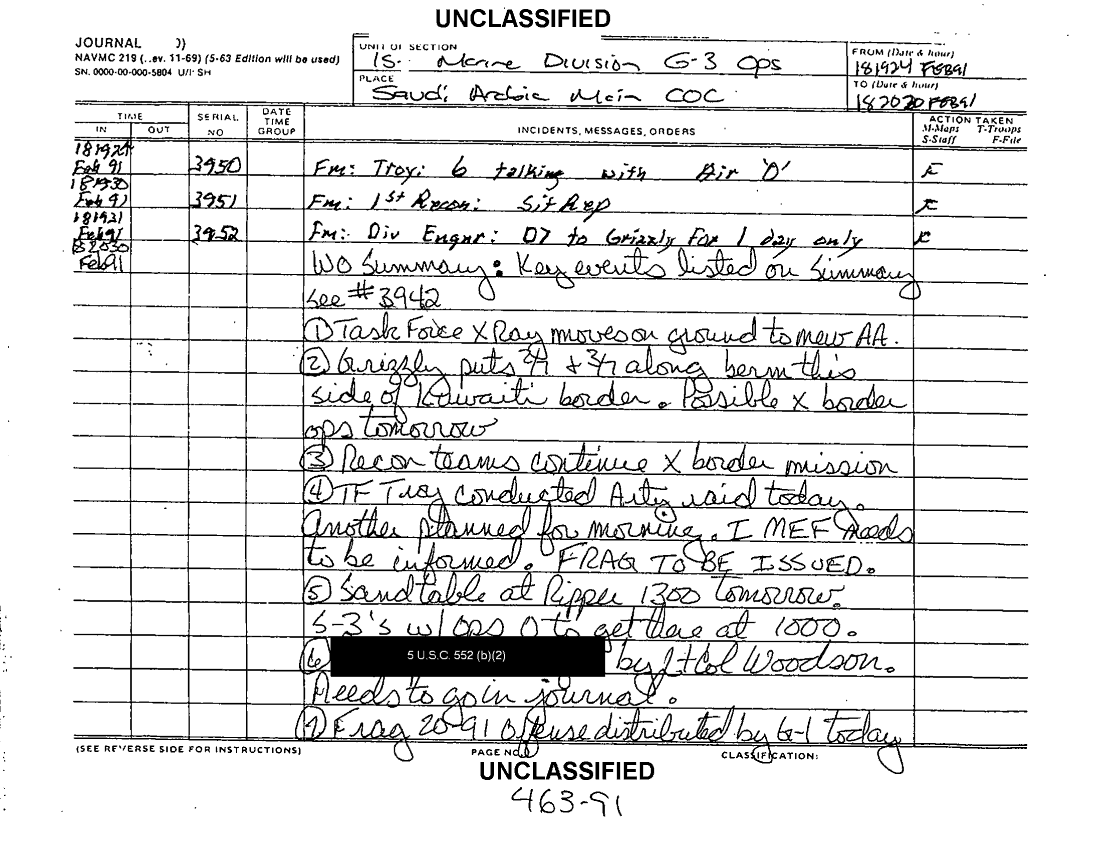 UNCLASSIFIED
JOURNAL
NAVMC 219 (..ev. 11-69) (5-63 Edition will be used)
SN. 0000-00-000-5804 U/I: SH
UNIT OF SECTION
1S- Marine Division G-3 Ops
PLACE
Saudi Arabia Main COC
FROM (Date & hour)
181924 FEB91
TO (Date & hour)
182020 FEB91
TIME
IN OUT
SERIAL NO
DATE TIME GROUP
INCIDENTS, MESSAGES, ORDERS
ACTION TAKEN
M-Maps T-Troops
S-Staff F-File
181924
Feb 91 3950 Fm: Troy: 6 talking with Air 'O' F
181930
Feb 91 3951 Fm: 1st Recon: SitRep F
181931
Feb 91 3952 Fm: Div Engnr: D7 to Grizzly for 1 day only F
182030
Feb 91 WO Summary: Key events listed on Summary
see #3942
① Task Force X Ray moves on ground to new AA.
② Grizzly puts 2/7 & 3/7 along berm this
side of Kuwaiti border. Possible X border
ops tomorrow
③ Recon teams continue X border mission
④ TF Troy conducted Arty raid today.
Another planned for morning. I MEF needs
to be informed. FRAG TO BE ISSUED.
⑤ Sandtable at Ripper 1300 tomorrow.
S-3's w/ Ops O to get there at 1000.
⑥ 5 U.S.C. 552 (b)(2) by LtCol Woodson.
Needs to go in journal.
⑦ Frag 20-91 Offense distributed by G-1 today
(SEE REVERSE SIDE FOR INSTRUCTIONS) PAGE NO. CLASSIFICATION:
UNCLASSIFIED
463-91